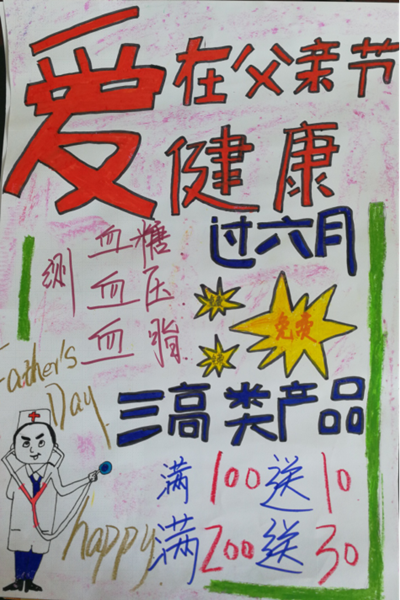 爱在父亲节
健康
过六月
测血糖
血压
血脂
免费
Father's
Day
三高类产品
满100送10
happy
满200送30